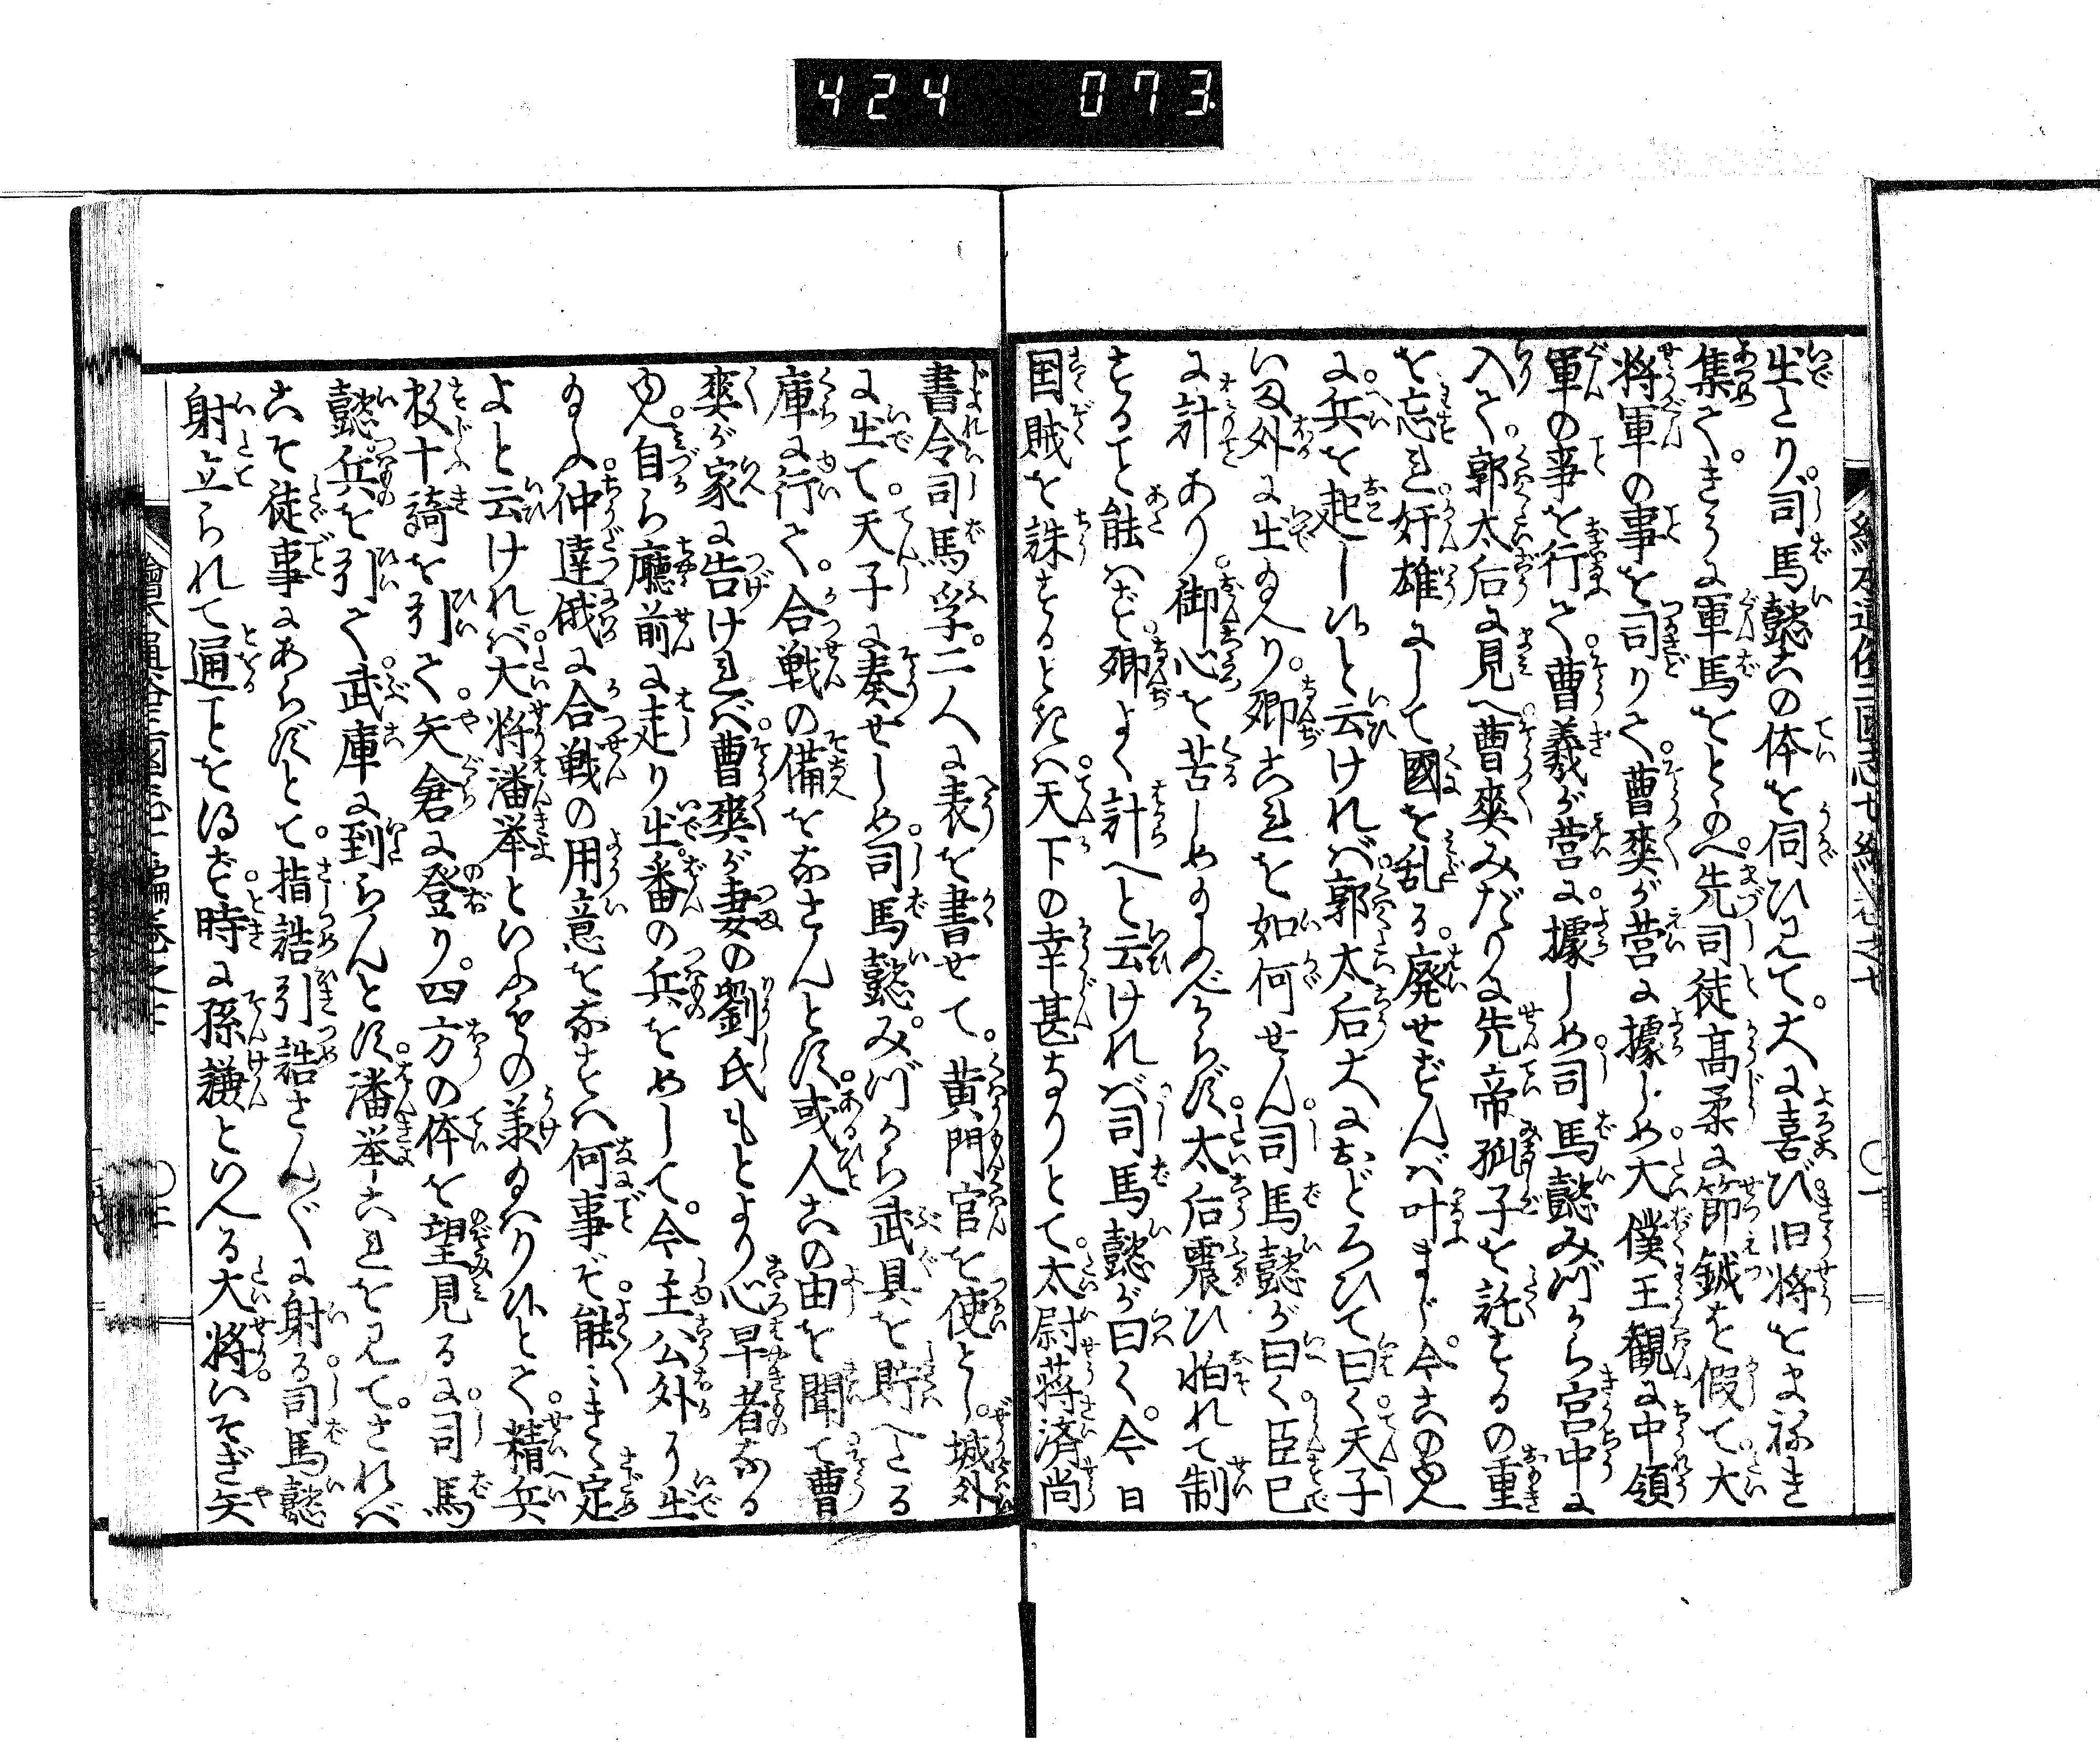 424 073
出たり。司馬懿此の体を伺ひ見て。大に喜び旧将をまねき
集て。きうに軍馬をとゝのへ。先司徒高柔に節鉞を假て。大
将軍の事を司りて。曹爽が営に據しめ。大僕王観に中領
軍の事を行て。曹羲が営に。據しめ。司馬懿みづから宮中に
入て。郭太后に見へ曹爽みだりに先帝孤子を託するの重
を忘れ。奸雄にして國を乱る。廃せずんば叶まじ。今この間
に。兵を起し候と云ければ。郭太后大におどろひて曰く。天子
いま外に出給へり。卿これを如何せん。司馬懿が曰く。臣已
に計あり。御心を苦しめ給ふべからず。太后震ひ怕れて制
すること能はず。卿よく計へと云ければ。司馬懿が曰く。今日
国賊を誅するときは。天下の幸甚なりとて。太尉蒋済尚
書令司馬孚。二人に表を書せて。黄門官を使とし。城外
に出て。天子に奏せしめ。司馬懿。みづから武具を貯へたる
庫に行て。合戦の備をなさんとす。或人此の由を聞て。曹
爽が家に告ければ。曹爽が妻の劉氏もとより心早者なる
ゆへ。自ら廳前に走り出。番の兵をめして。今主公外に出
給ふ。仲達俄に合戦の用意をなすは何事ぞ。能々きゝ定
よと云ければ。大将潘挙といふもの。兼給はり候とて。精兵
数十騎を引て。矢倉に登り。四方の体を望見るに。司馬
懿。兵を引て。武庫に到らんとす。潘挙これを見て。されば
こそ徒事にあらずとて。指詰引詰さんざんに射る。司馬懿
射立られて通ことを得ず。時に孫謙といへる大将。いそぎ矢